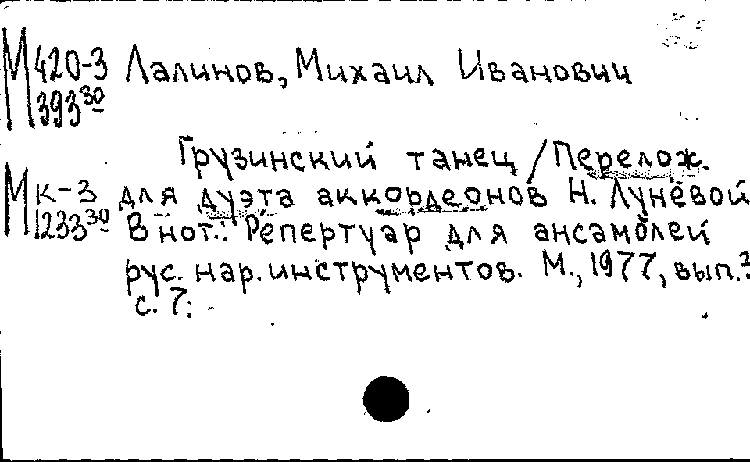 М 420-3 Лалинов, Михаил Иванович
393 30
Грузинский танец / Перелож.
М к-3 для дуэта аккордеонов Н. Лунёвой
1233 30 В нот.: Репертуар для ансамблей
рус. нар. инструментов. М., 1977, вып.
с. 7.